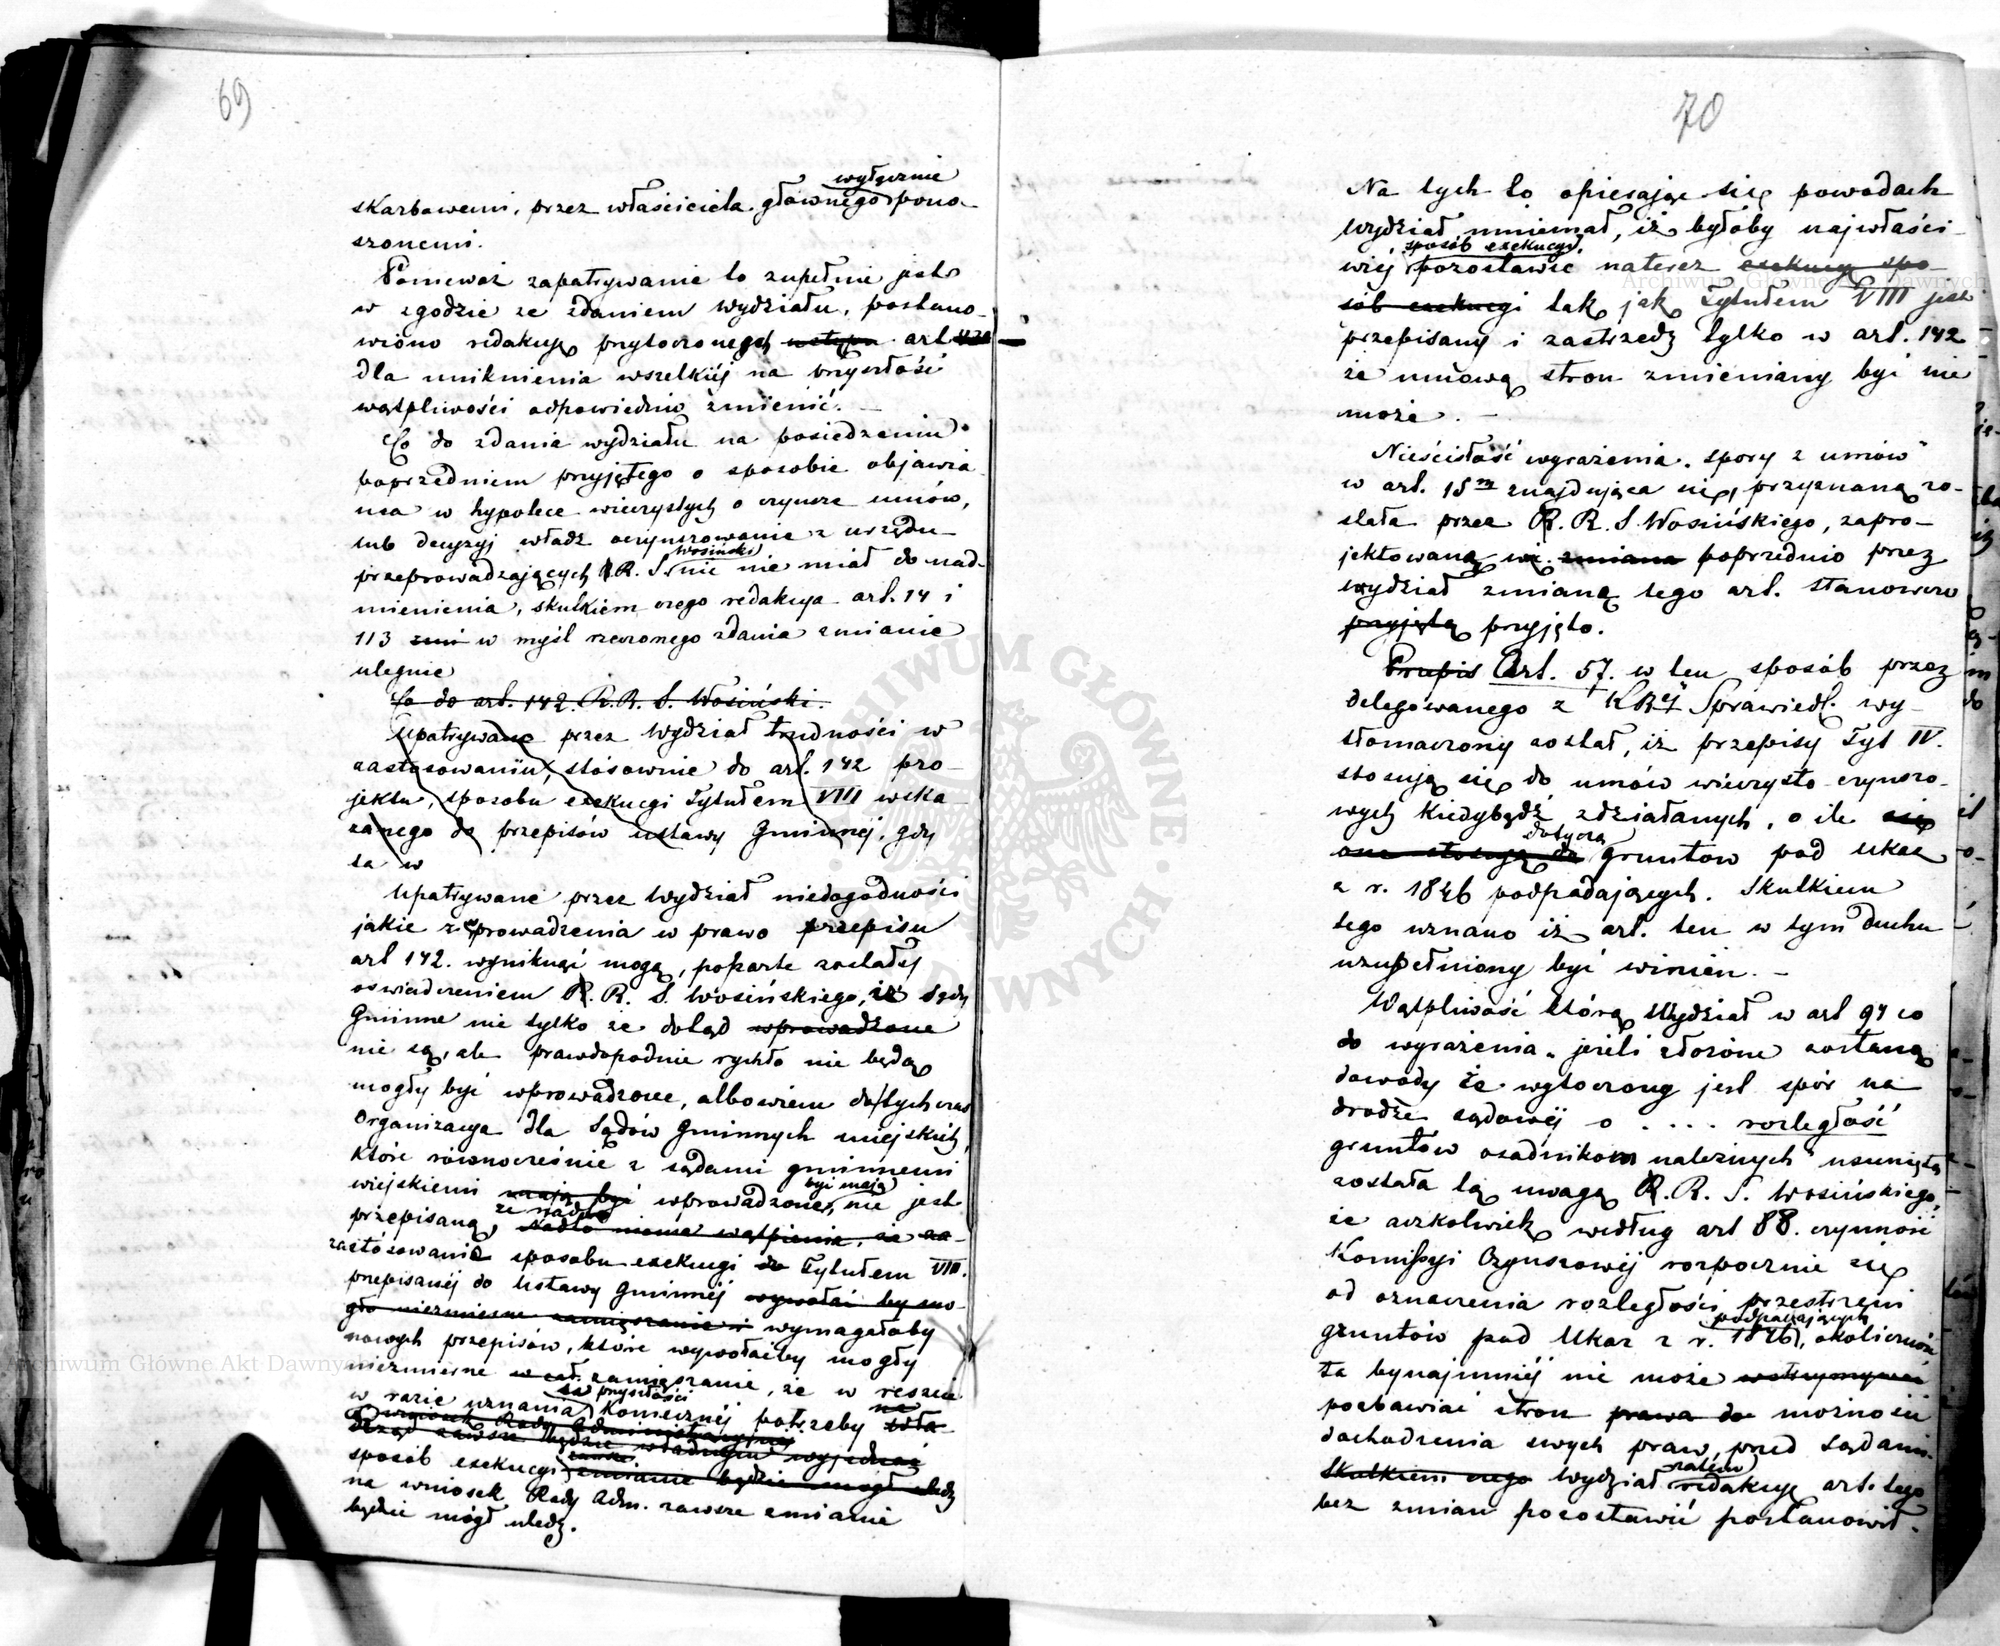 69
wyłącznie
skarbowemi, przez właściciela głównego pono-
szonemi.
Ponieważ zapatrywanie to zupełnie jest
w zgodzie ze zdaniem wydziału, postano-
wiono redakcyę przytoczonego wstępu art
dla uniknienia wszelkiéj na przyszłość
wątpliwości odpowiednio zmienić. —
Co do zdania wydziału na posiedzeniu
poprzedniem przyjętego o sposobie objawia
nia w hypotece wieczystych o czynsze umów,
lub decyzyj władz oczynszowanie z urzędu
Wosiński
przeprowadzających R. R. S. nic nie miał do nad-
mienienia, skutkiem czego redakcya art. 14 i
113 zmi w myśl rzeczonego zdania zmianie
ulegnie
Co do art. 142. R. R. S. Wosiński.
Upatrywane przez Wydział trudności w
zastosowaniu, stósownie do art. 142 pro-
jektu, sposobu exekucyi Tytułem VIII wska
zanego do przepisów ustawy Gminnéj, gdy
ta w
Upatrywane przez Wydział niedogodności
jakie z wprowadzenia w prawo przepisu
art 142. wyniknąć mogą, poparte zostały
oswiadczeniem R. R. S. Wosińskiego, iż Sądy
Gminne nie tylko że dotąd wprowadzone
nie są, ale prawdopodnie rychło nie będą
mogły być wprowadzone, albowiem dotychczas
Organizacya dla Sądów Gminnych miejskich,
które równocześnie z sądami gminnemi
być mają
wiejskiemi mają być wprowadzone, nie jest
że nadto
przepisaną, nadto niema wątpienia, że za-
zastósowanie sposobu exekucyi do Tytułem VIII.
przepisanéj do Ustawy Gminnéj wywołać by mo-
gło niezmierne zamięszanie i wymagałoby
nowych przepisów, które wywołaćby mogły
niezmierne w cał. zamięszanie, że w reszcie
na przyszłość
w razie uznania koniecznéj potrzeby
Rząd zawsze będzie władnym wyjednać
sposób exekucyi zmianie będzie mógł uledz
na wniosek Rady Adm. zawsze zmianie
będzie mógł uledz.
70
Na tych to opierając się powodach
Wydział mniemał, iż byłoby najwłaści-
sposób exekucyi,
wiéj pozostawić naterez exekucyi spo-
sób exekucyi tak jak Tytułem VIII jest
przepisany i zastrzedz tylko w art. 142
że umową stron zmieniany być nie
może. —
Nieścisłość wyrażenia „spory z umów"
w art. 15m znajdująca się, przyznaną zo-
stała przez R. R. S. Wosińskiego, zapro-
jektowaną więc zmiana poprzednio przez
wydział zmianę tego art. stanowczo
przyjętą przyjęto.
Przepis Art. 57. w ten sposób przez
delegowanego z KRz Sprawiedl. wy-
tłomaczony został, iż przepisy Tyt IV.
stosują się do umów wieczysto czynszo-
wych kiedybądź zdziałanych, o ile się
dotyczą
one stosują do gruntów pod Ukaz
z r. 1846 podpadających. Skutkiem
tego uznano iż art. ten w tym duchu
uzupełniony być winien. —
Wątpliwość którą Wydział w art 94 co
do wyrażenia „jeżeli złożone zostaną
dowody że wytoczony jest spór na
drodze sądowéj o .... rozległość
gruntów osadnikom należnych" usunięta
została tą uwagą R. R. S. Wosińskiego,
że aczkolwiek według art 88. czynność
Komissyi Czynszowéj rozpocznie się
od oznaczenia rozległości przestrzeni
podpadających
gruntów pod Ukaz z r. 1846, okoliczność
ta bynajmniéj nie może wstrzymywać
pozbawiać stron prawa do możności
dochodzenia swych praw, przed Sądami.
zatém
Skutkiem czego Wydział redakcyę art. tego
bez zmian pozostawić postanowił.
Archiwum Główne Akt Dawnych
Archiwum Główne Akt Dawnych